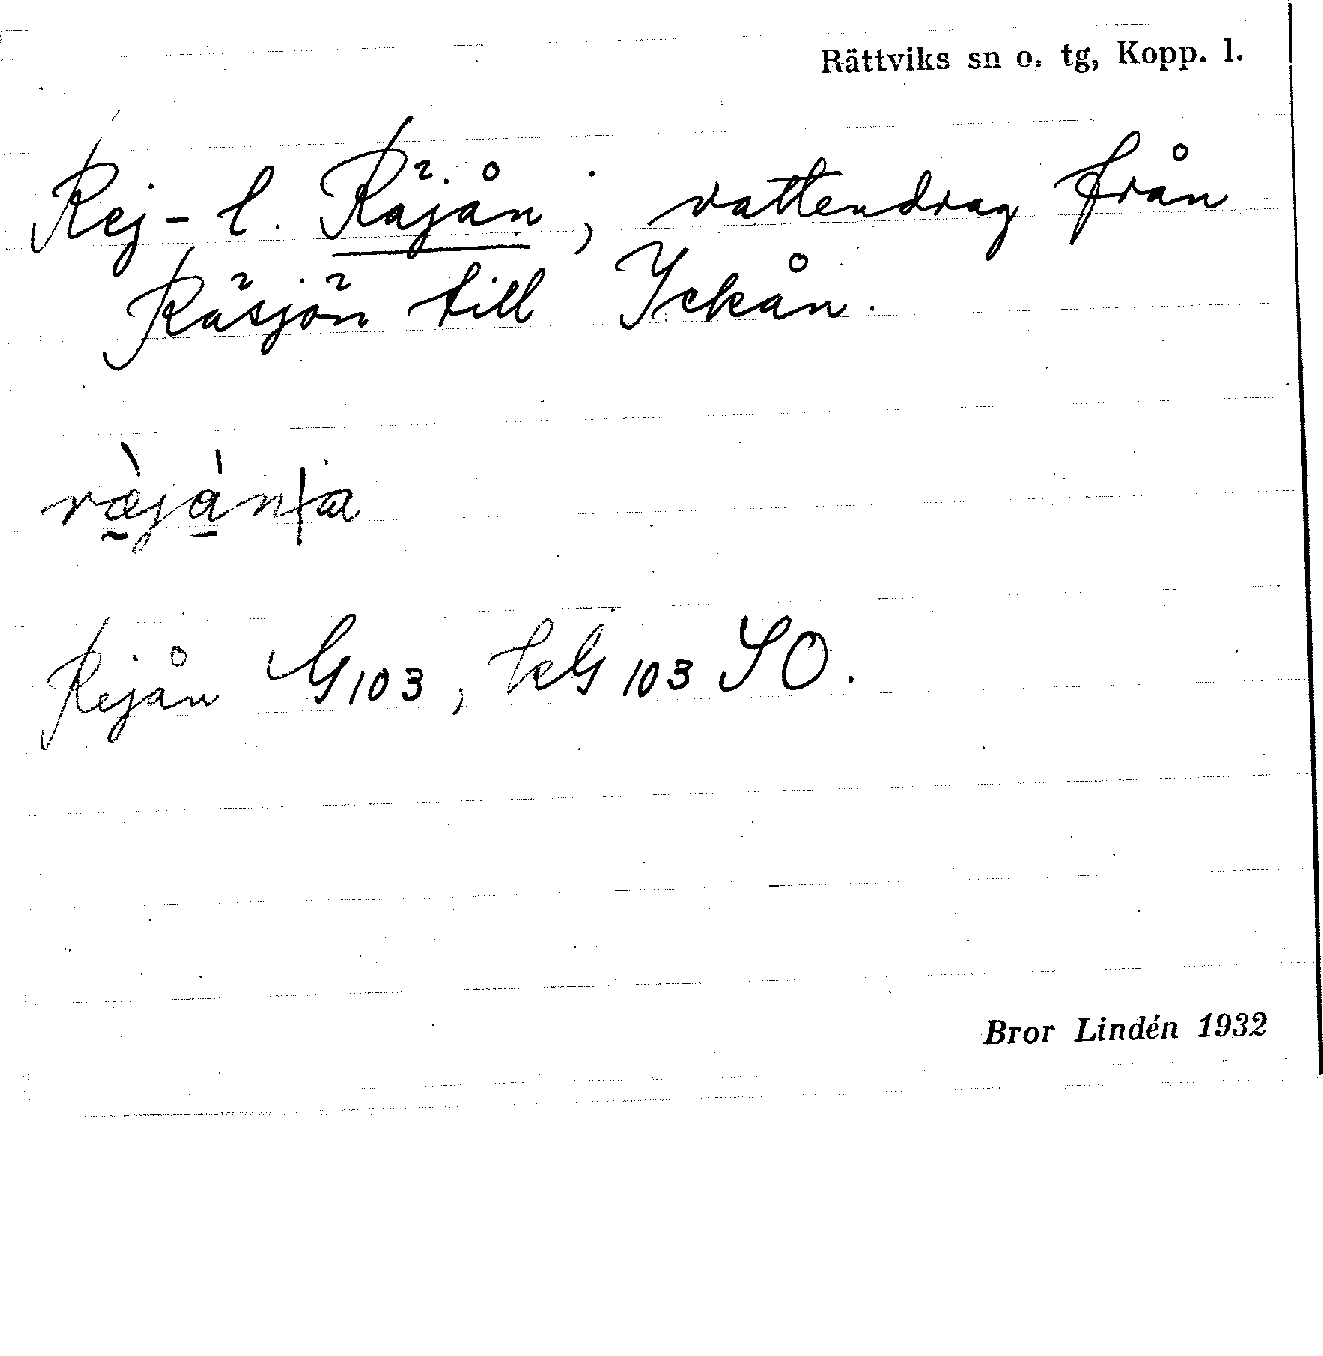 Rättviks sn o. tg, Kopp. l.
Rej- l. Räjån; vattendrag från
Räsjön till Ickån.
ræ̀ján|a
Rejån G103, kG 103 SO.
Bror Lindén 1932